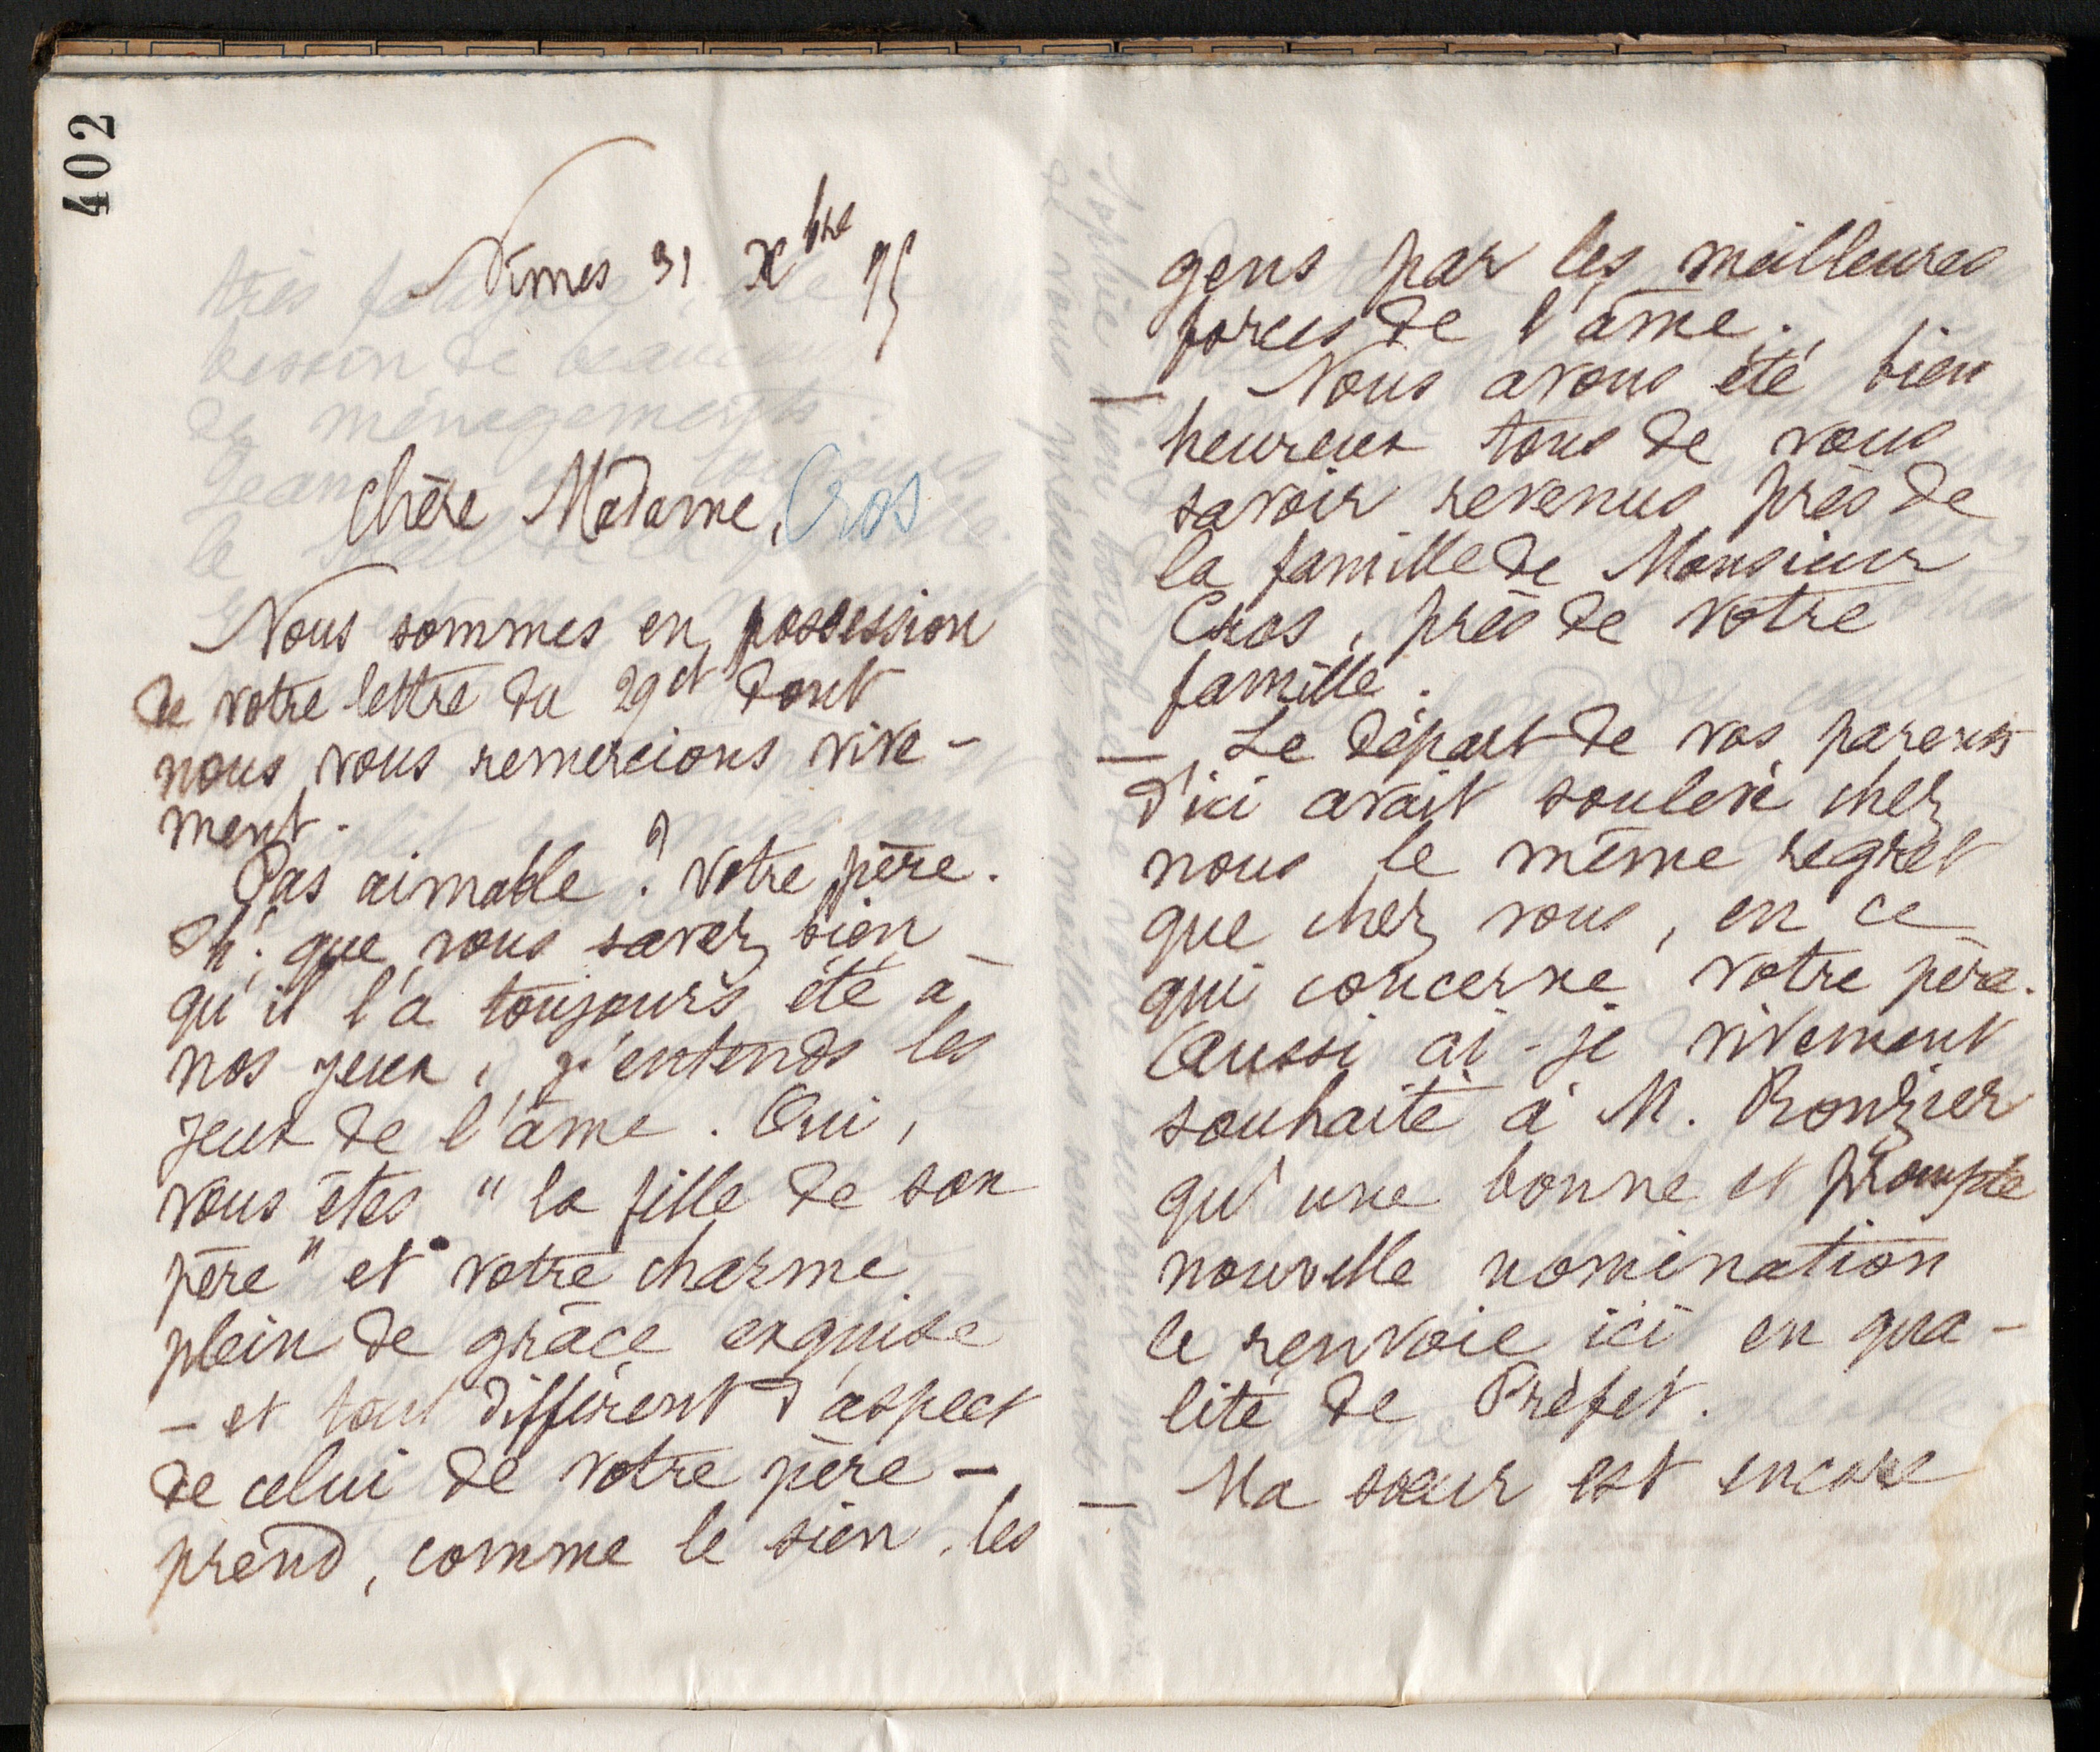 402
Nîmes 31 Xbre 95
Chère Madame, Cros
Nous sommes en possession
de votre lettre du 29 ct dont
nous vous remercions vive-
ment.
Pas aimable ? Votre père.
Oh ! que vous savez bien
qu'il l'a toujours été à
nos yeux, j'entends les
yeux de l'âme. Oui,
vous êtes "la fille de son
père" et votre charme
plein de grâce exquise
- et tout différent d'aspect
de celui de votre père -
prend, comme le sien, les
gens par les meilleures
forces de l'âme.
- Nous avons été bien
heureux tous de vous
savoir revenus près de
la famille de Monsieur
Cros, près de votre
famille.
- Le départ de vos parents
d'ici avait soulevé chez
nous le même regret
que chez vous, en ce
qui concerne votre père.
Aussi ai-je vivement
souhaité à M. Rouzier
qu'une bonne et prompte
nouvelle nomination
le renvoie ici en qua-
lité de Préfet.
- Ma sœur est encore